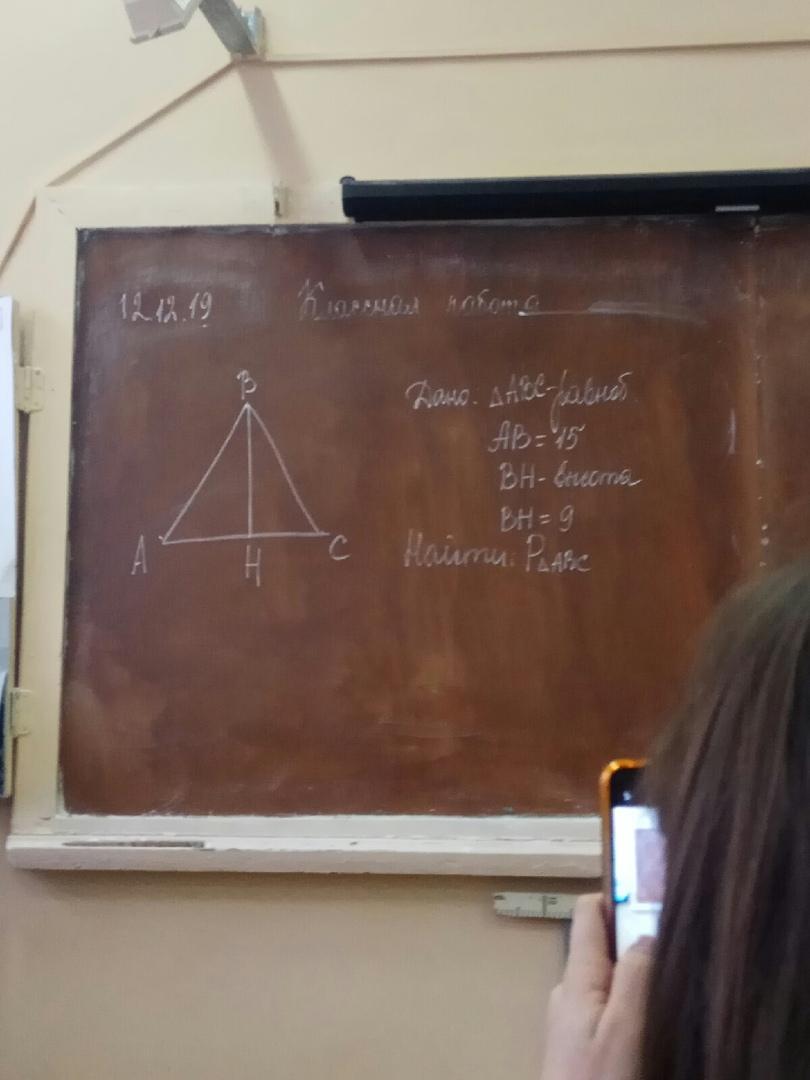 12.12.19 Классная работа
B
A
H
C
Дано: △ABC-равноб.
AB = 15
BH - высота
BH = 9
Найти: P△ABC